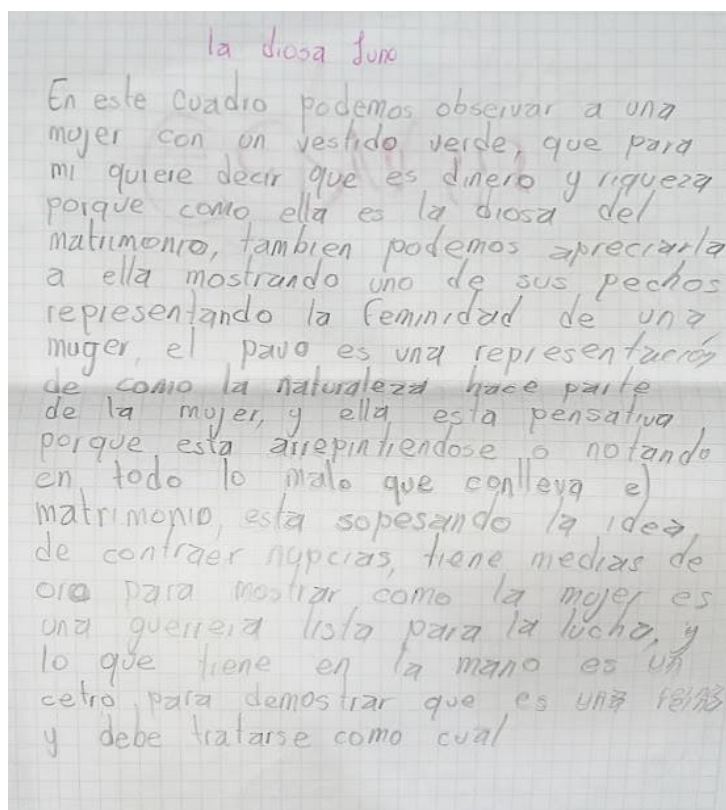 la diosa Juno
En este cuadro podemos observar a una
mujer con un vestido verde, que para
mi quiere decir que es dinero y riqueza
porque como ella es la diosa del
matrimonio, tambien podemos apreciarla
a ella mostrando uno de sus pechos
representando la feminidad de una
muger, el pavo es una representación
de como la naturaleza hace parte
de la mujer, y ella esta pensativa
porque esta arrepintiendose o notando
en todo lo malo que conlleva el
matrimonio, esta sopesando la idea,
de contraer nupcias, tiene medias de
oro para mostrar como la mujer es
una guerrera lista para la lucha, y
lo que tiene en la mano es un
cetro para demostrar que es una reina
y debe tratarse como cual